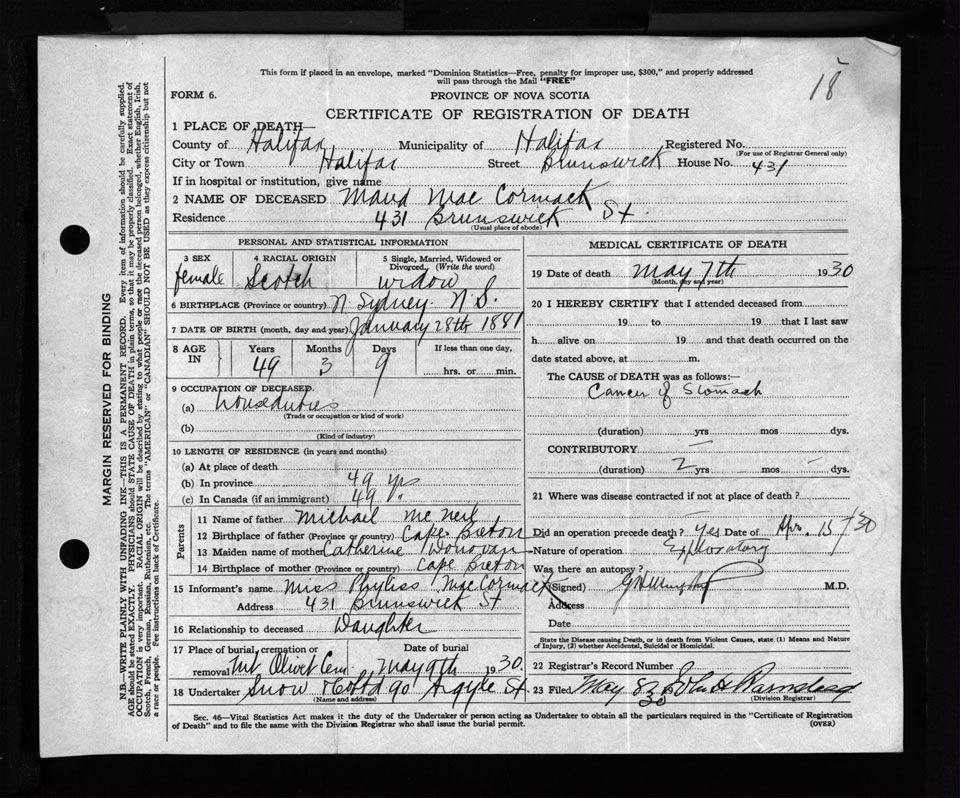 18
This form if placed in an envelope, marked "Dominion Statistics—Free, penalty for improper use, $300," and properly addressed
will pass through the Mail "FREE"
FORM 6.
PROVINCE OF NOVA SCOTIA
CERTIFICATE OF REGISTRATION OF DEATH
1 PLACE OF DEATH—
County of Halifax Municipality of Halifax Registered No.
(For use of Registrar General only)
City or Town Halifax Street Brunswick House No. 431
If in hospital or institution, give name
2 NAME OF DECEASED Maud Mac Cormack
Residence 431 Brunswick St.
(Usual place of abode)
PERSONAL AND STATISTICAL INFORMATION
3 SEX 4 RACIAL ORIGIN 5 Single, Married, Widowed or
Divorced. (Write the word)
female Scotch widow
6 BIRTHPLACE (Province or country) N Sydney. N.S.
7 DATE OF BIRTH (month, day and year) January 28th 1881
8 AGE IN Years Months Days If less than one day,
49 3 9 hrs. or min.
9 OCCUPATION OF DECEASED.
(a) houseduties
(Trade or occupation or kind of work)
(b)
(Kind of industry)
10 LENGTH OF RESIDENCE (in years and months)
(a) At place of death
(b) In province 49 yrs
(c) In Canada (if an immigrant) 49.
Parents
11 Name of father Michael Mc Neil
12 Birthplace of father (Province or country) Cape Breton
13 Maiden name of mother Catherine Donovan
14 Birthplace of mother (Province or country) Cape Breton
15 Informant's name Miss Phyliss Mac Cormack
Address 431 Brunswick St
16 Relationship to deceased Daughter
17 Place of burial, cremation or Date of burial
removal Mt Olivet Cem. May 9th 1930.
18 Undertaker Snow & Co Ltd 90 Argyle St.
(Name and address)
MEDICAL CERTIFICATE OF DEATH
19 Date of death May 7th 1930
(Month, day and year)
20 I HEREBY CERTIFY that I attended deceased from
19 to 19 that I last saw
h alive on 19 and that death occurred on the
date stated above, at m.
The CAUSE of DEATH was as follows:—
Cancer of Stomach
(duration) yrs mos dys.
CONTRIBUTORY —
(duration) 2 yrs — mos — dys.
21 Where was disease contracted if not at place of death?
Did an operation precede death? yes Date of Apr. 15/30
Nature of operation Exploratory
Was there an autopsy?
(Signed) M.D.
Address
Date
State the Disease causing Death, or in death from Violent Causes, state (1) Means and Nature
of Injury, (2) whether Accidental, Suicidal or Homicidal.
22 Registrar's Record Number
23 Filed May 8 30 John H
(Division Registrar)
Sec. 46—Vital Statistics Act makes it the duty of the Undertaker or person acting as Undertaker to obtain all the particulars required in the "Certificate of Registration
of Death" and to file the same with the Division Registrar who shall issue the burial permit.
(OVER)
MARGIN RESERVED FOR BINDING
N.B.—WRITE PLAINLY WITH UNFADING INK—THIS IS A PERMANENT RECORD. Every item of information should be carefully supplied.
AGE should be stated EXACTLY. PHYSICIANS should STATE CAUSE OF DEATH in plain terms, so that it may be properly classified. Exact statement of
OCCUPATION is very important. RACIAL ORIGIN will be described by stating to what people or race the deceased person belonged, whether English, Irish,
Scotch, French, German, Russian, Ruthenian, etc. The terms "AMERICAN" or "CANADIAN" SHOULD NOT BE USED as they express citizenship but not
a race or people. See instructions on back of Certificate.